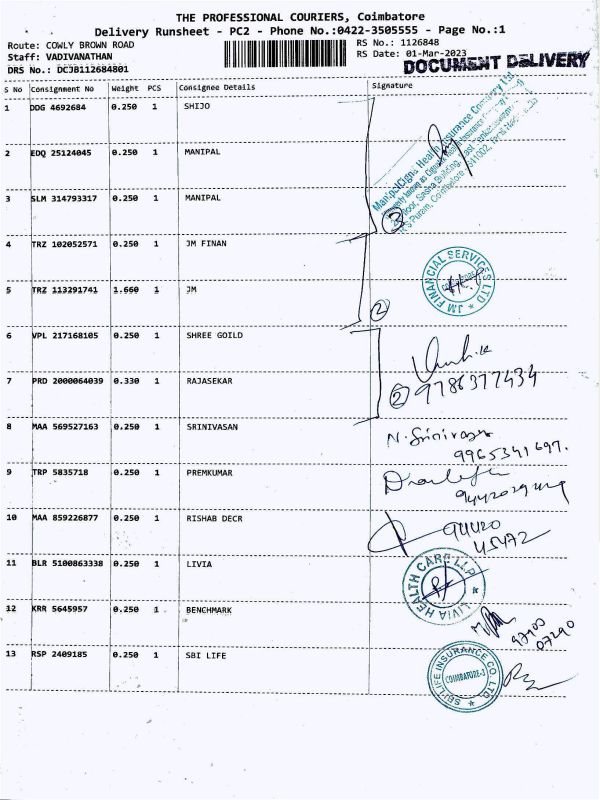 THE PROFESSIONAL COURIERS, Coimbatore
Delivery Runsheet - PC2 - Phone No.:0422-3505555 - Page No.:1
Route: COWLY BROWN ROAD RS No.: 1126848
Staff: VADIVANATHAN RS Date: 01-Mar-2023
DRS No.: DCJB112684801 DOCUMENT DELIVERY
S No Consignment No Weight PCS Consignee Details Signature
1 DDG 4692684 0.250 1 SHIJO
2 EDQ 25124045 0.250 1 MANIPAL
3 SLM 314793317 0.250 1 MANIPAL
ManipalCigna Health Insurance Company Ltd.
3
4 TRZ 102052571 0.250 1 JM FINAN
5 TRZ 113291741 1.660 1 JM
JM FINANCIAL SERVICES LTD
2
6 VPL 217168105 0.250 1 SHREE GOILD
7 PRD 2000064039 0.330 1 RAJASEKAR
2 9786377434
8 MAA 569527163 0.250 1 SRINIVASAN
N. Srinivasan
9965341697.
9 TRP 5835718 0.250 1 PREMKUMAR
10 MAA 859226877 0.250 1 RISHAB DECR
94420
45472
11 BLR 5100863338 0.250 1 LIVIA
LIVIA HEALTH CARE LLP
12 KRR 5645957 0.250 1 BENCHMARK
97903
07290
13 RSP 2409185 0.250 1 SBI LIFE
SBI LIFE INSURANCE CO. LTD
COIMBATORE-J